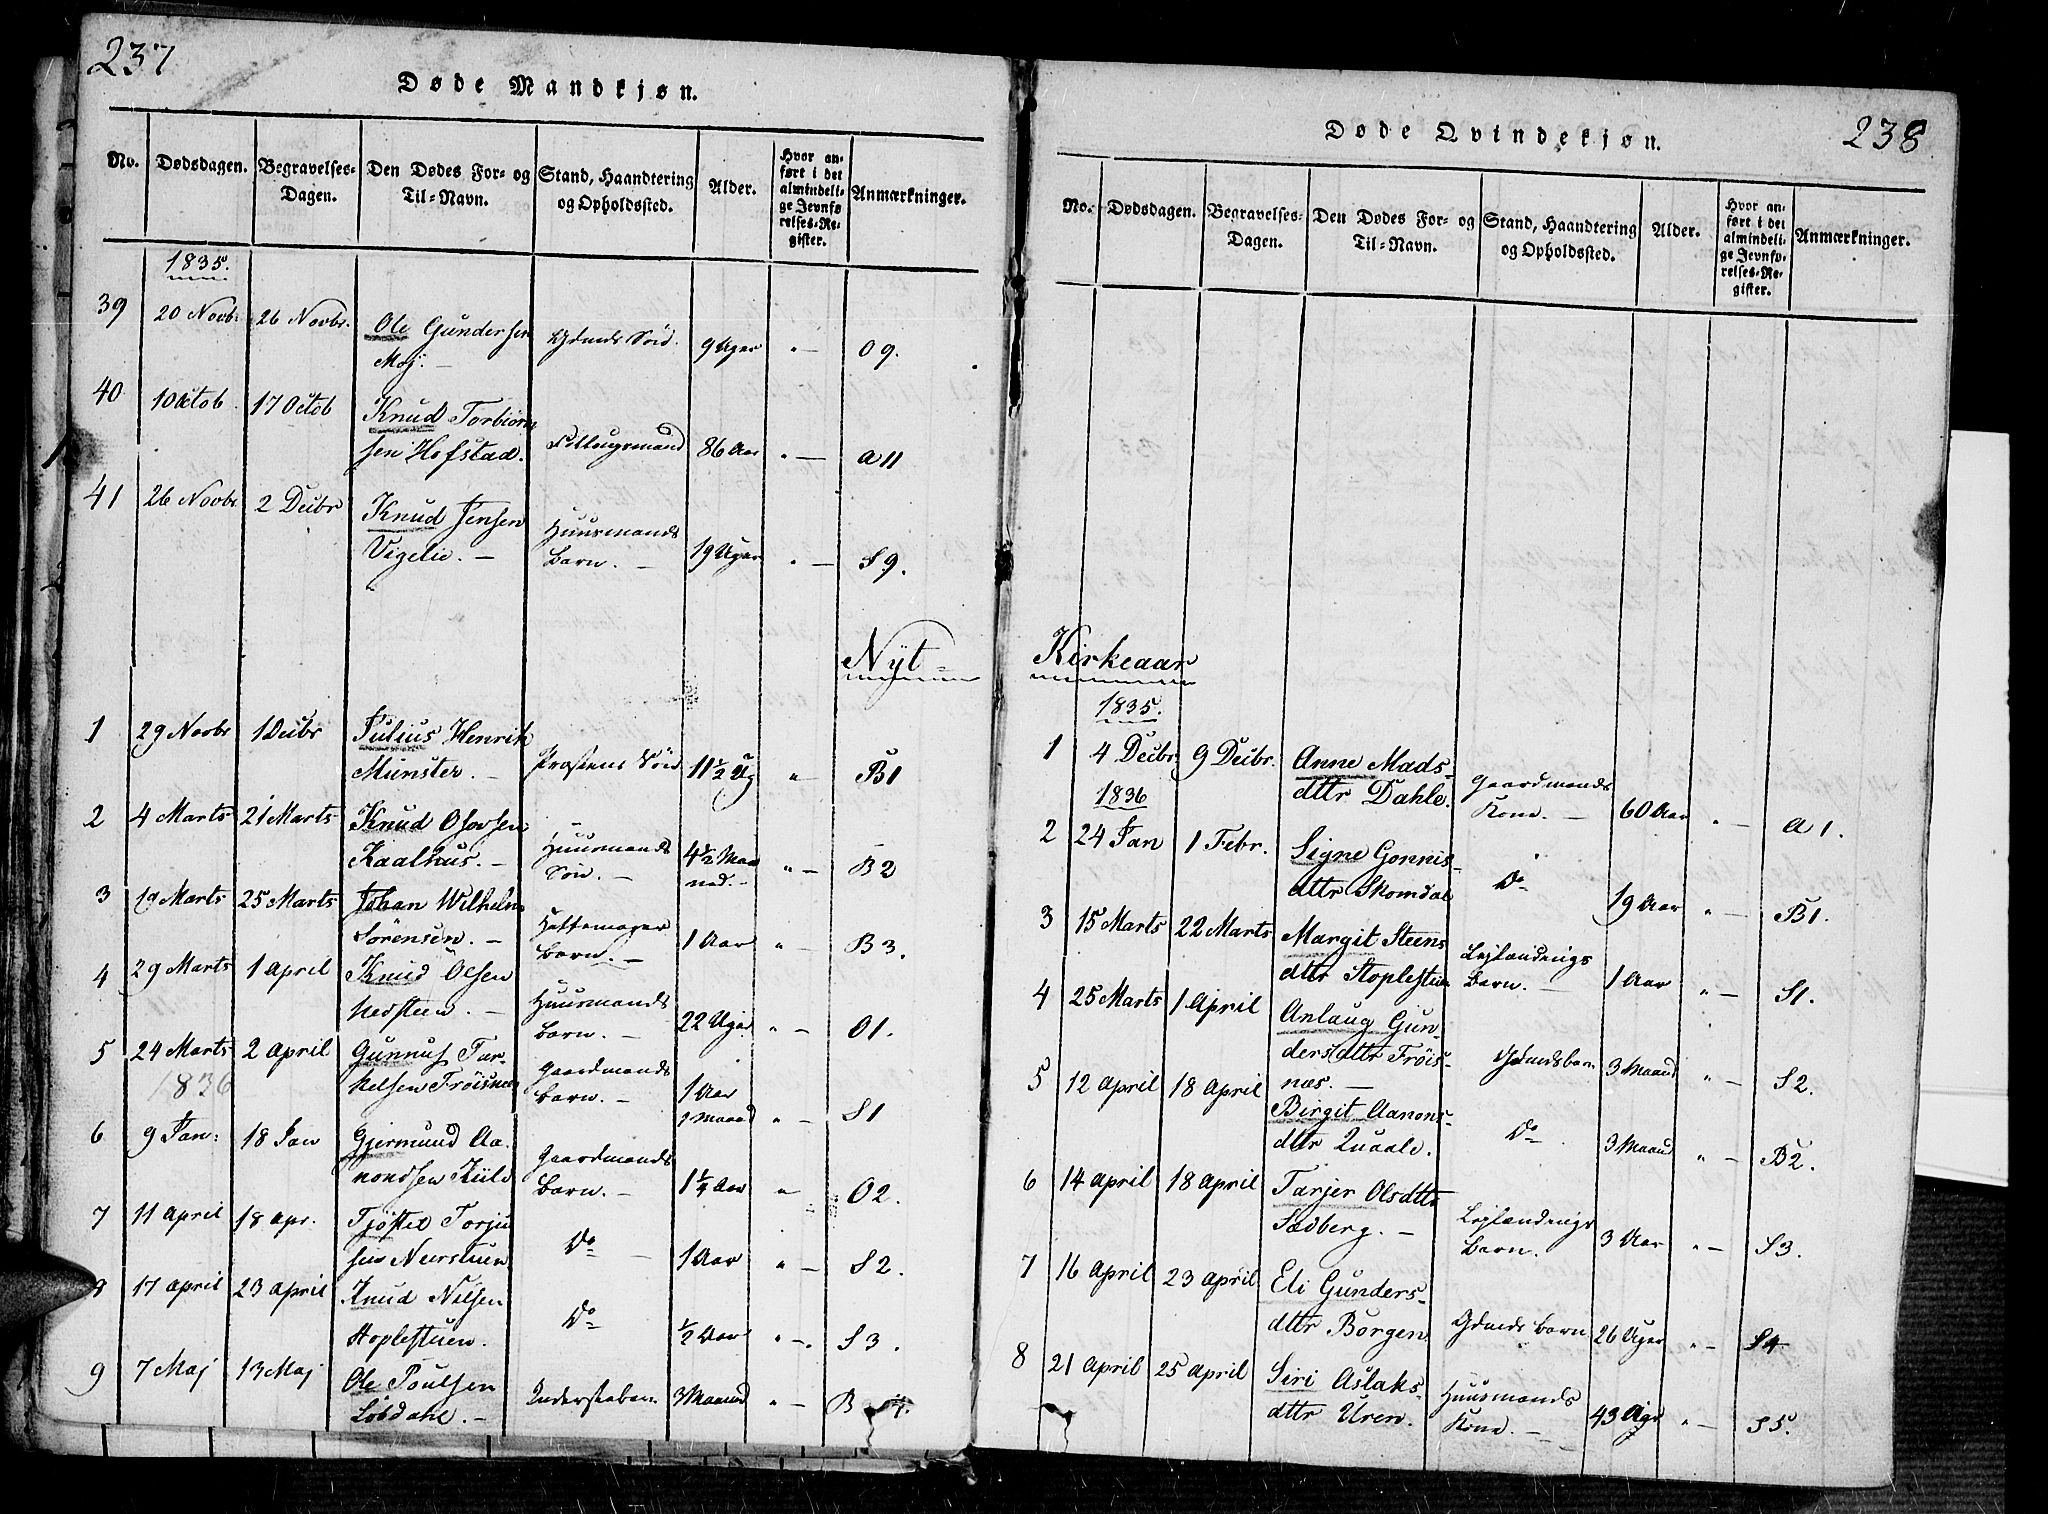 237
Døde Mandkjøn.
No. Dødsdagen. Begravelses-Dagen. Den Dødes For- og Til-Navn. Stand, Haandtering og Opholdssted. Alder. Hvor anført i det almindelige Jevnførelses-Register. Anmærkninger.
1835.
39 20 Novb. 26 Novbr. Ole Gundersen Sön. 9 Uger " — O 9.
Moj. —
40 10 Octob 17 Octob Knud Torbiörn 86 Aar " — A 11
sen Hofstad.
41 26 Novbr 2 Decbr Knud Jensen Huusmands 19 Uger " — S 9.
Vigelie. — Barn. —
Nÿt-
1 29 Novbr 1 Decbr Julius Henrik Præstens Sön 11½ Ug " B 1
Münster. —
2 4 Marts 21 Marts Knud Osovsen Huusmands 4½ Maa " — B 2
Kaalhus. — Sön. — ned. —
3 19 Marts 25 Marts Johan Wilhelm 1 Aar " — B 3.
Sörensen. — Barn. —
4 29 Marts 1 April Knud Olsen Huusmands 22 Uger " — O 1.
Nedsteen. — Barn. —
5 24 Marts 2 April Gunnuf Tar- Gaardmands 1 Aar " — S 1
1836 kelsen Fröisnæs Barn. — Maaned
6 9 Jan: 18 Jan Gjermund Aa- Gaardmands 1¼ Aar " O 2.
nondsen Kiile Barn. —
7 11 April 18 Apr. Tjöstel Torju Do — 1 Aar " — S 2.
sen Neerstuen
8 17 April 23 April Knud Nilsen Do ½ Aar " — S 3.
Stoplestuen.
9 7 Maj 13 Maj Ole Poulsen 3 Maaned " — B 4.
Löbdahl. —
238
Døde Qvindekjøn.
No. Dødsdagen. Begravelses-Dagen. Den Dødes For- og Til-Navn. Stand, Haandtering og Opholdssted. Alder. Hvor anført i det almindelige Jevnførelses-Register. Anmærkninger.
Kirkeaar
1835.
1 4 Decbr 9 Decbr. Anne Mads- Gaardmands 60 Aar " — A 1.
1836 dttr Dahle. Kone. —
2 24 Jan 1 Febr. Signe Gonnis- Do 19 Aar " — B 1.
dttr Skomdal
3 15 Marts 22 Marts Margit Steens Lejlændings 1 Aar " — S 1.
dttr Stoplestuen Barn. —
4 25 Marts 1 April Anlaug Gun- 3 Maaned " — S 2.
dersdttr Fröis-
næs. —
5 12 April 18 April Birgit Aanons- Do 3 Maaned " — B 2.
dttr Quaale.
6 14 April 18 April Tarjer Olsdttr Lejlændings 3 Aar " — S 3.
Sædberg. — Barn.
7 16 April 23 April Eli Gunders- Barn 26 Uger " — S 4
dttr Borgen
8 21 April 25 April Siri Aslaks- Huusmands 43 " — S 5.
dttr Uren. Kone. —